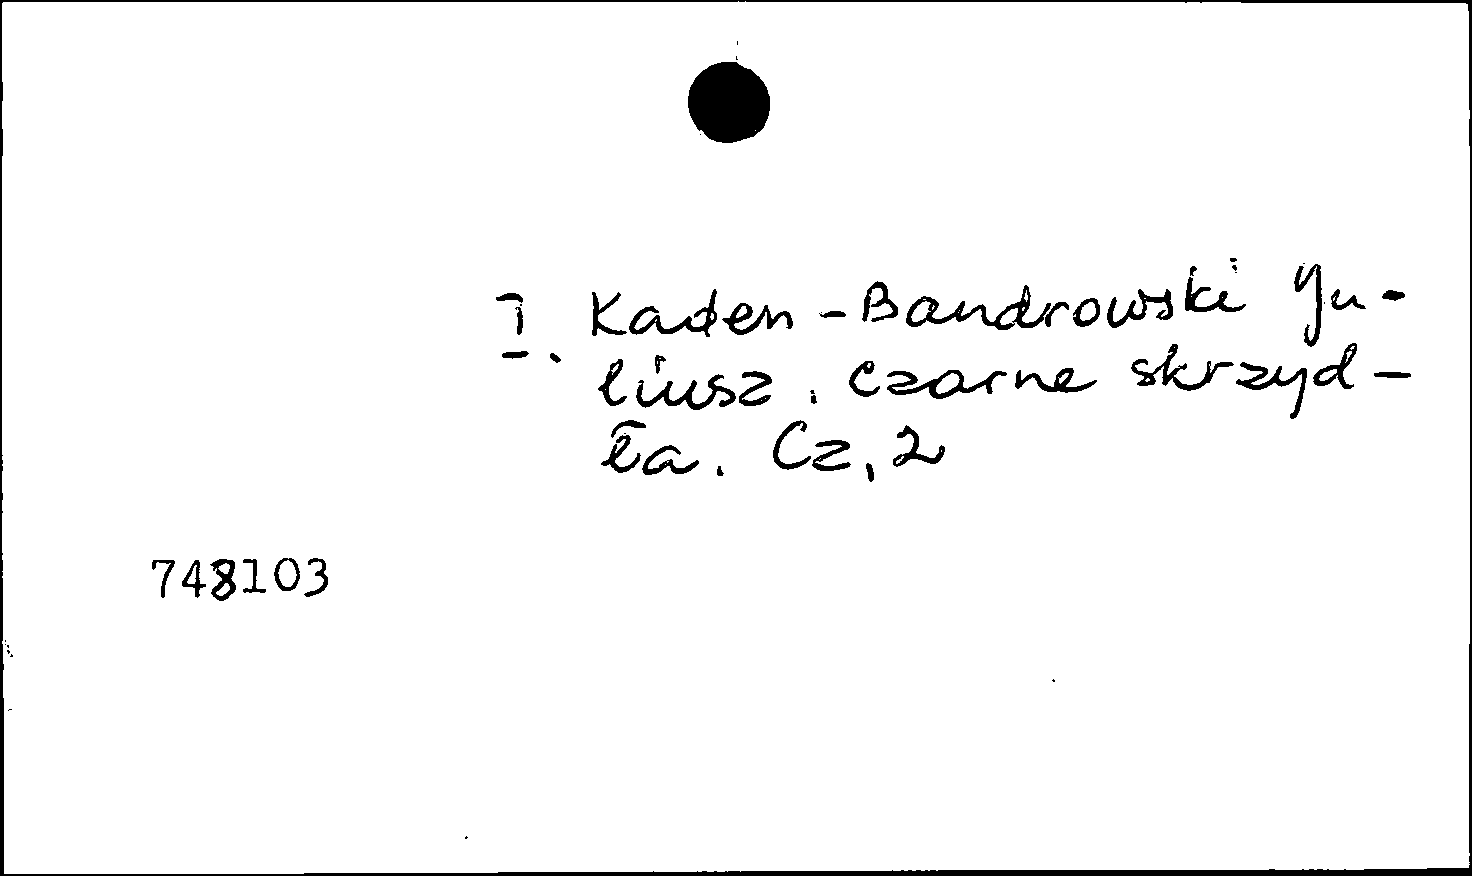 I. Kaden-Bandrowski Ju-
liusz. Czarne skrzyd-
ła. Cz, 2
748103